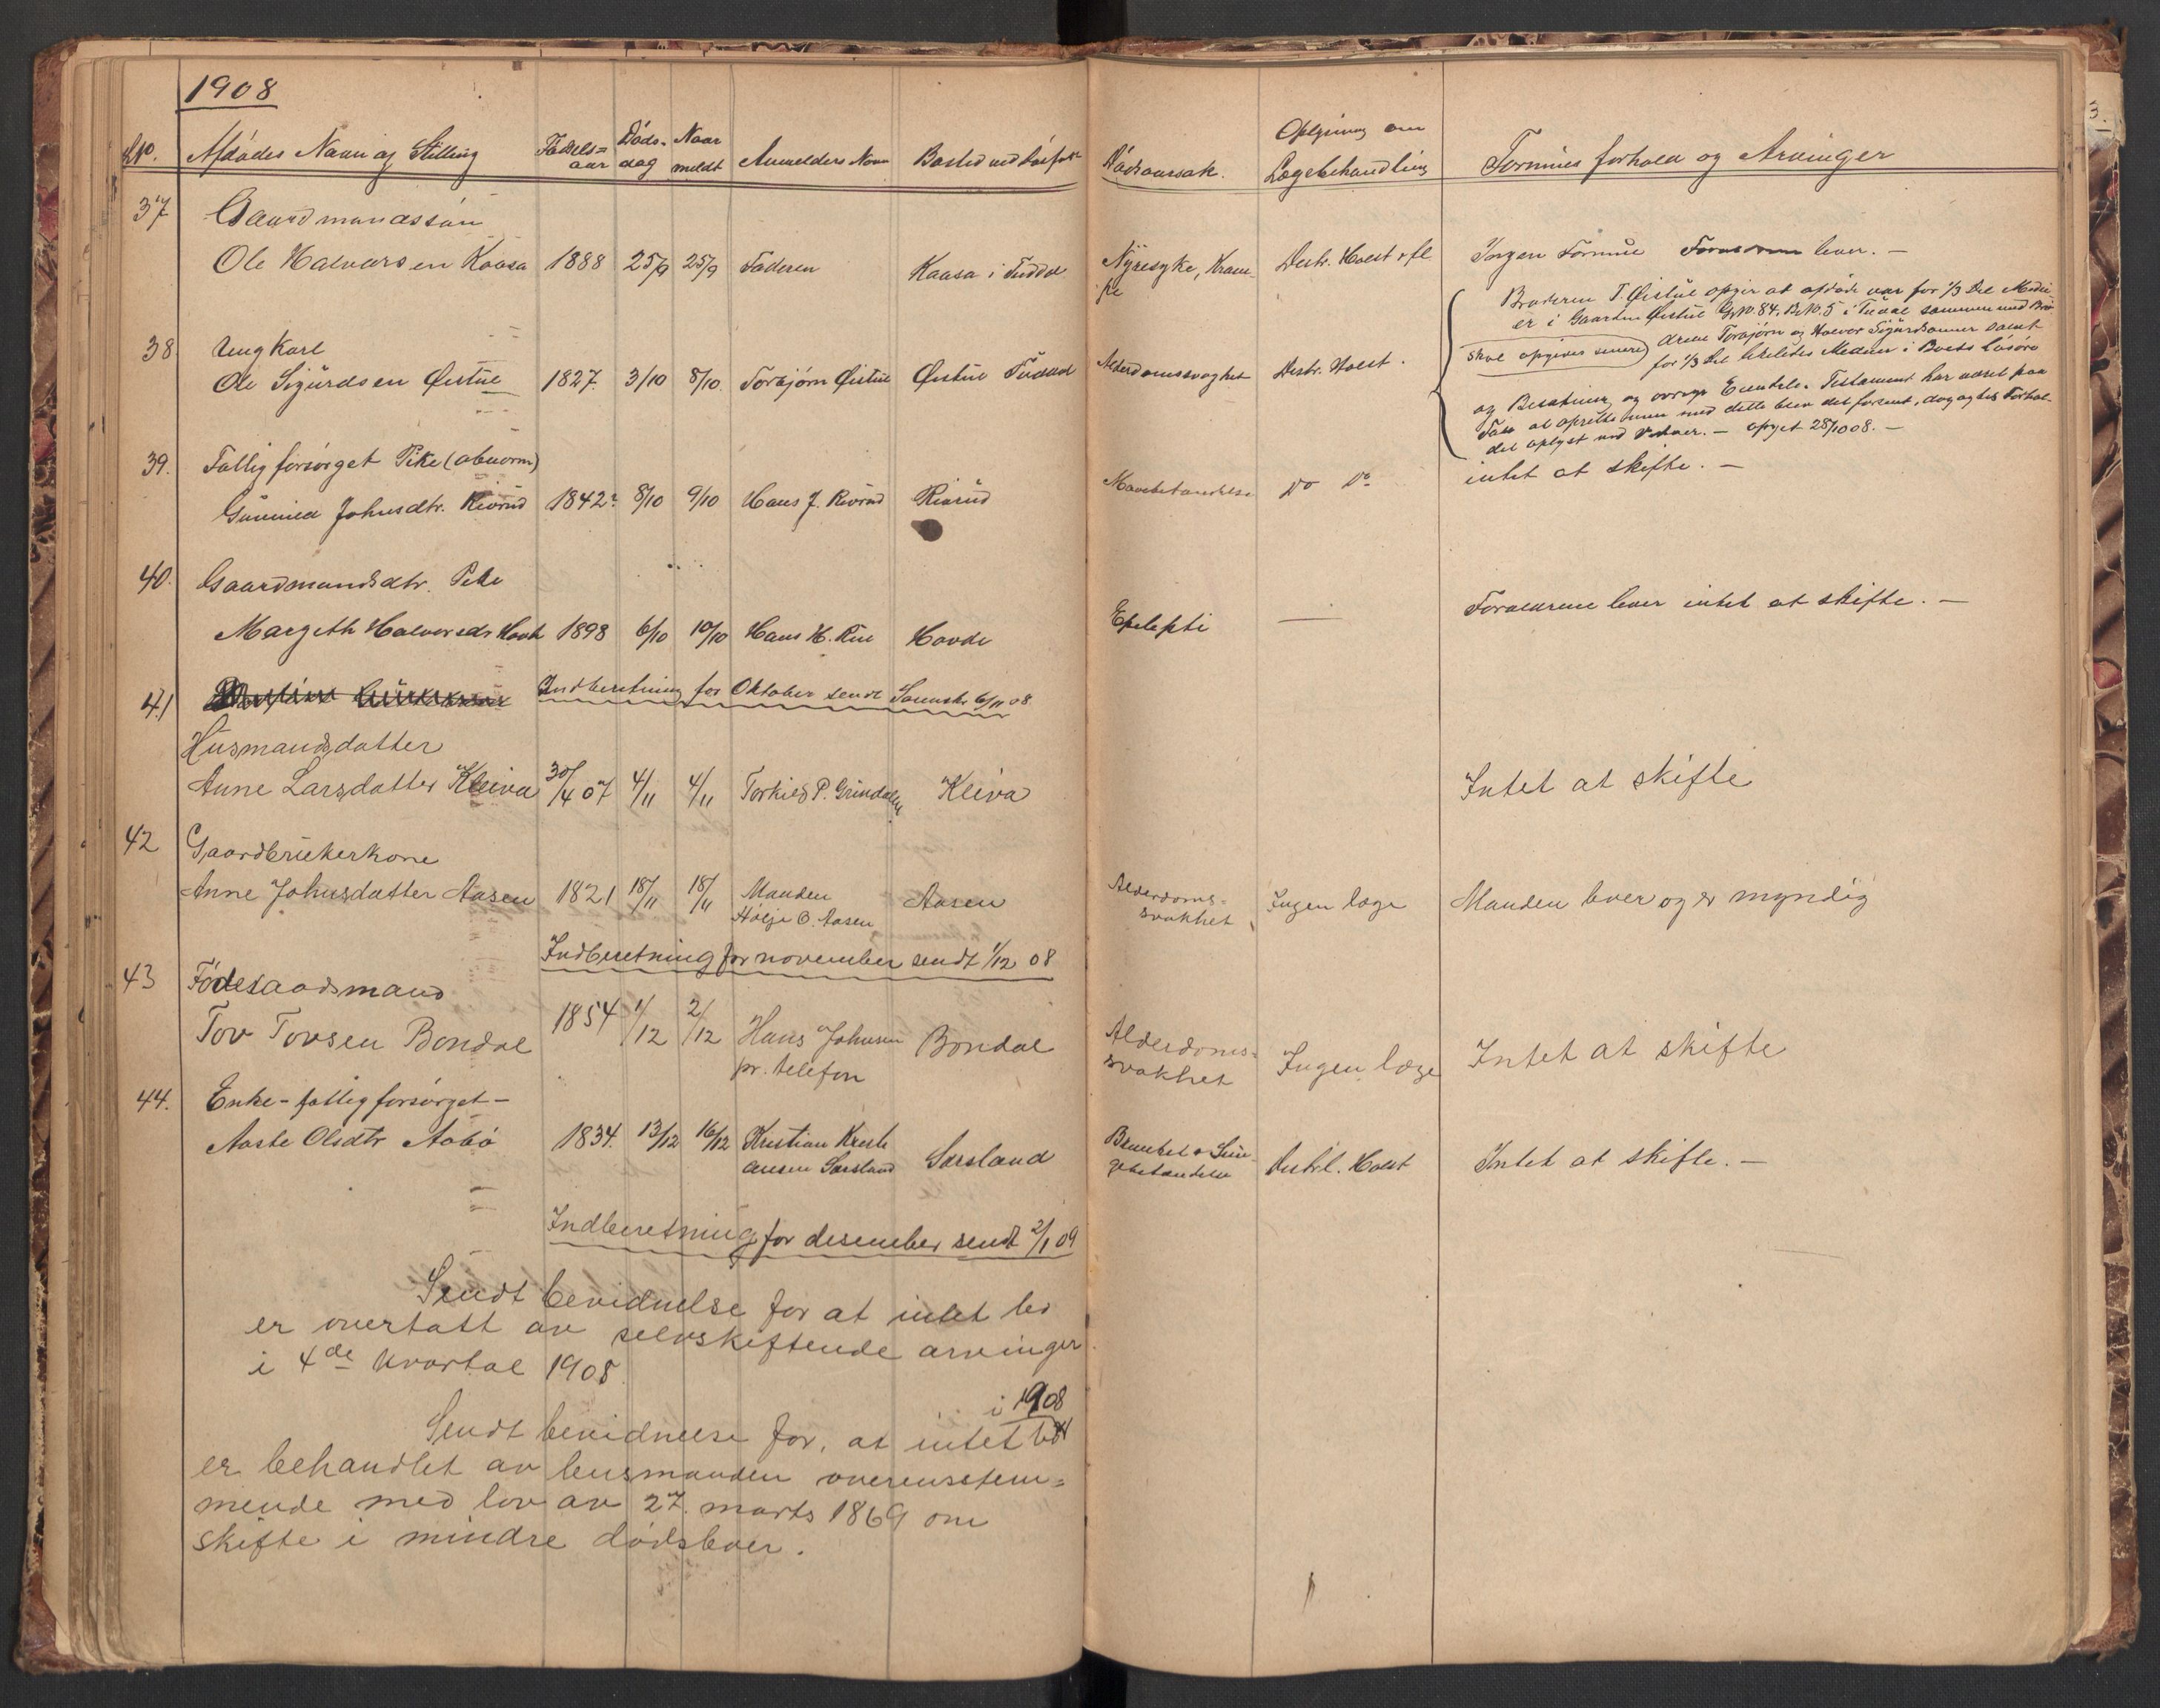 1908
No. Afdødes Navn og Stilling Fødelsaar Dødsdag Naar meldt Anmelders Navn Bosted ved Dødsf. Dødsaarsak. Oplysning om Lægebehandling Formues forhold og Arvinger
37 Gaardmandssøn
Ole Halvorsen Kaasa 1888 25/9 25/9 Faderen Kaasa i Tuddal Nyresyke, Distr. Holst Ingen Formue lever. —
38 Ungkarl
Ole Sigurdsen Øistul 1827. 3/10 8/10. Torbjørn Øistul Øistul Tuddal Alderdomssvaghet Distr. Holst.
Broderen T. Øistul opgir at afdøde var for 1/3 Del Medei-
er i Gaarden Øistul GrNo. 84. BNo. 5 i Tudal sammen med Brø-
skal opgives senere) drene Torbjørn og Halvor Sigurdsønner samt
for 1/3 Del ligeledes Medeier i Boets Løsøre
og Besætning og øvrige Eiendele. Testament har været paa
Tale at oprette men med dette blev det forsent, dog
det oplyst ved — opgit 28/10 08. —
39. Fattigforsørget Pike (abnorm) intet at skifte. —
Gunnild Johnsdtr. Riorud 1842? 8/10 9/10 Hans J. Riorud Riorud Mavebetændelse Do Do
40. Gaardmandsdtr. Pike
Margith Halvorsdr Hovde 1898 6/10 10/10 Hans H. Rue Hovde Epilepti — Forældrene lever intet at skifte. —
41 Indberetning for Oktober sendt Sorenskr 6/11 08
Husmandsdatter
Anne Larsdatter Kleiva 30/4 07 4/11 4/11 Torkild P. Grindalen Kleiva Intet at skifte
42 Gaardbrukerkone
Anne Johnsdatter Aasen 1821 18/11 18/11 Manden Aasen Alderdoms= Ingen læge Manden lever og er myndig
Hølje O. Aasen svakhet
Indberetning for november sendt 1/12 08
43 Føderaadsmand
Tov Tovsen Bondal 1854 1/12 2/12 Hans Johnsen Bondal Alderdoms= Ingen læge Intet at skifte
pr. telefon svakhet
44. Enke - fattigforsørget -
Aaste Olsdtr Aabø 1834. 13/12 16/12 Kristian Kristi Sørsland Distrl. Holst Intet at skifte. —
ansen Sørsland
Indberetning for desember sendt 2/1 09
Sendt bevidnelse for at intet bo
er overtatt av selvskiftende arvinger
i 4de kvartal 1908
i 1908
Sendt bevidnelse for, at intet bo
er behandlet av lensmanden overensstem=
mende med lov av 27. marts 1869 om
skifte i mindre dødsboer.